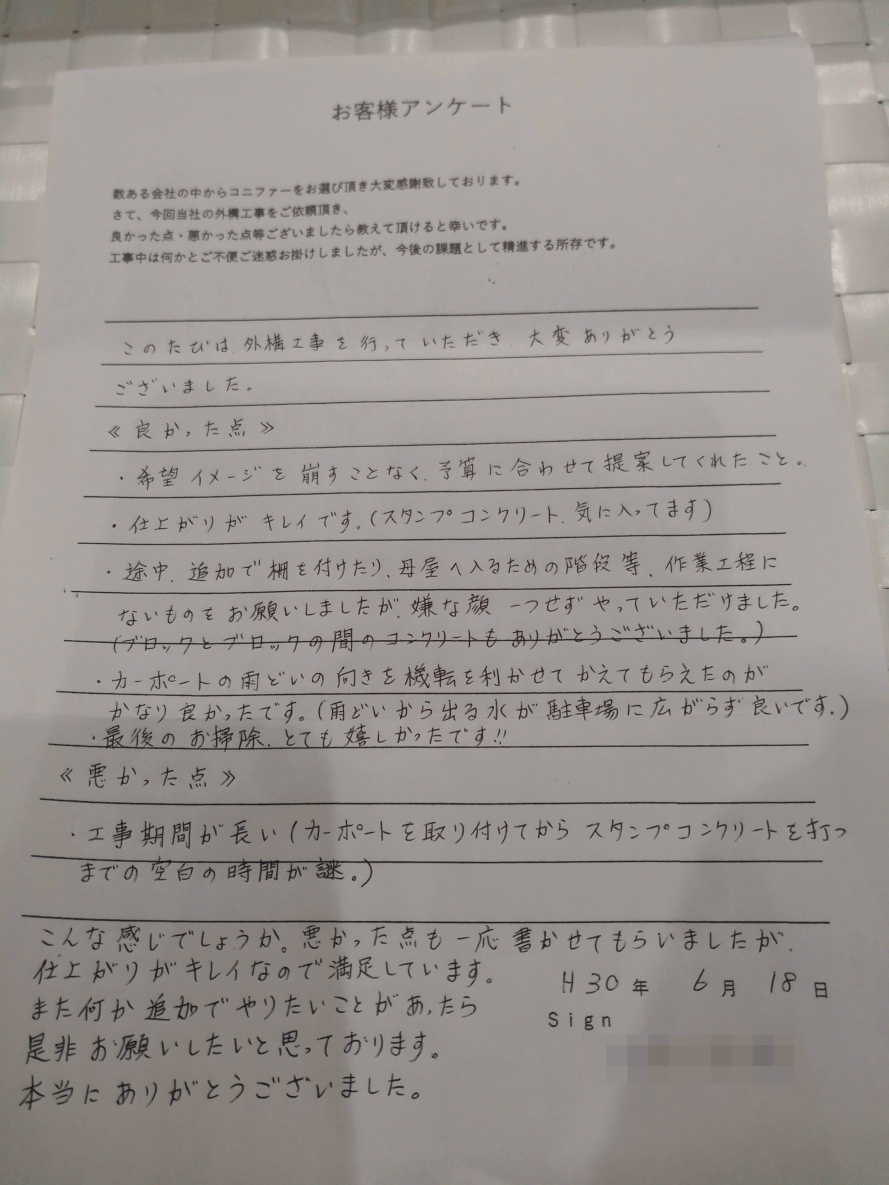 お客様アンケート
数ある会社の中からコニファーをお選び頂き大変感謝致しております。
さて、今回当社の外構工事をご依頼頂き、
良かった点・悪かった点等ございましたら教えて頂けると幸いです。
工事中は何かとご不便ご迷惑お掛けしましたが、今後の課題として精進する所存です。
このたびは、外構工事を行っていただき、大変ありがとう
ございました。
《良かった点》
・希望イメージを崩すことなく、予算に合わせて提案してくれたこと。
・仕上がりがキレイです。(スタンプコンクリート、気に入ってます)
・途中、追加で棚を付けたり、母屋へ入るための階段等、作業工程に
ないものをお願いしましたが、嫌な顔一つせずやっていただけました。
(ブロックとブロックの間のコンクリートもありがとうございました。)
・カーポートの雨どいの向きを機転を利かせてかえてもらえたのが
かなり良かったです。(雨どいから出る水が駐車場に広がらず良いです。)
・最後のお掃除、とても嬉しかったです!!
《悪かった点》
・工事期間が長い(カーポートを取り付けてからスタンプコンクリートを打つ
までの空白の時間が謎。)
こんな感じでしょうか。悪かった点も一応書かせてもらいましたが、
仕上がりがキレイなので満足しています。
また何か追加でやりたいことがあったら
是非お願いしたいと思っております。
本当にありがとうございました。
H30年 6月 18日
Sign